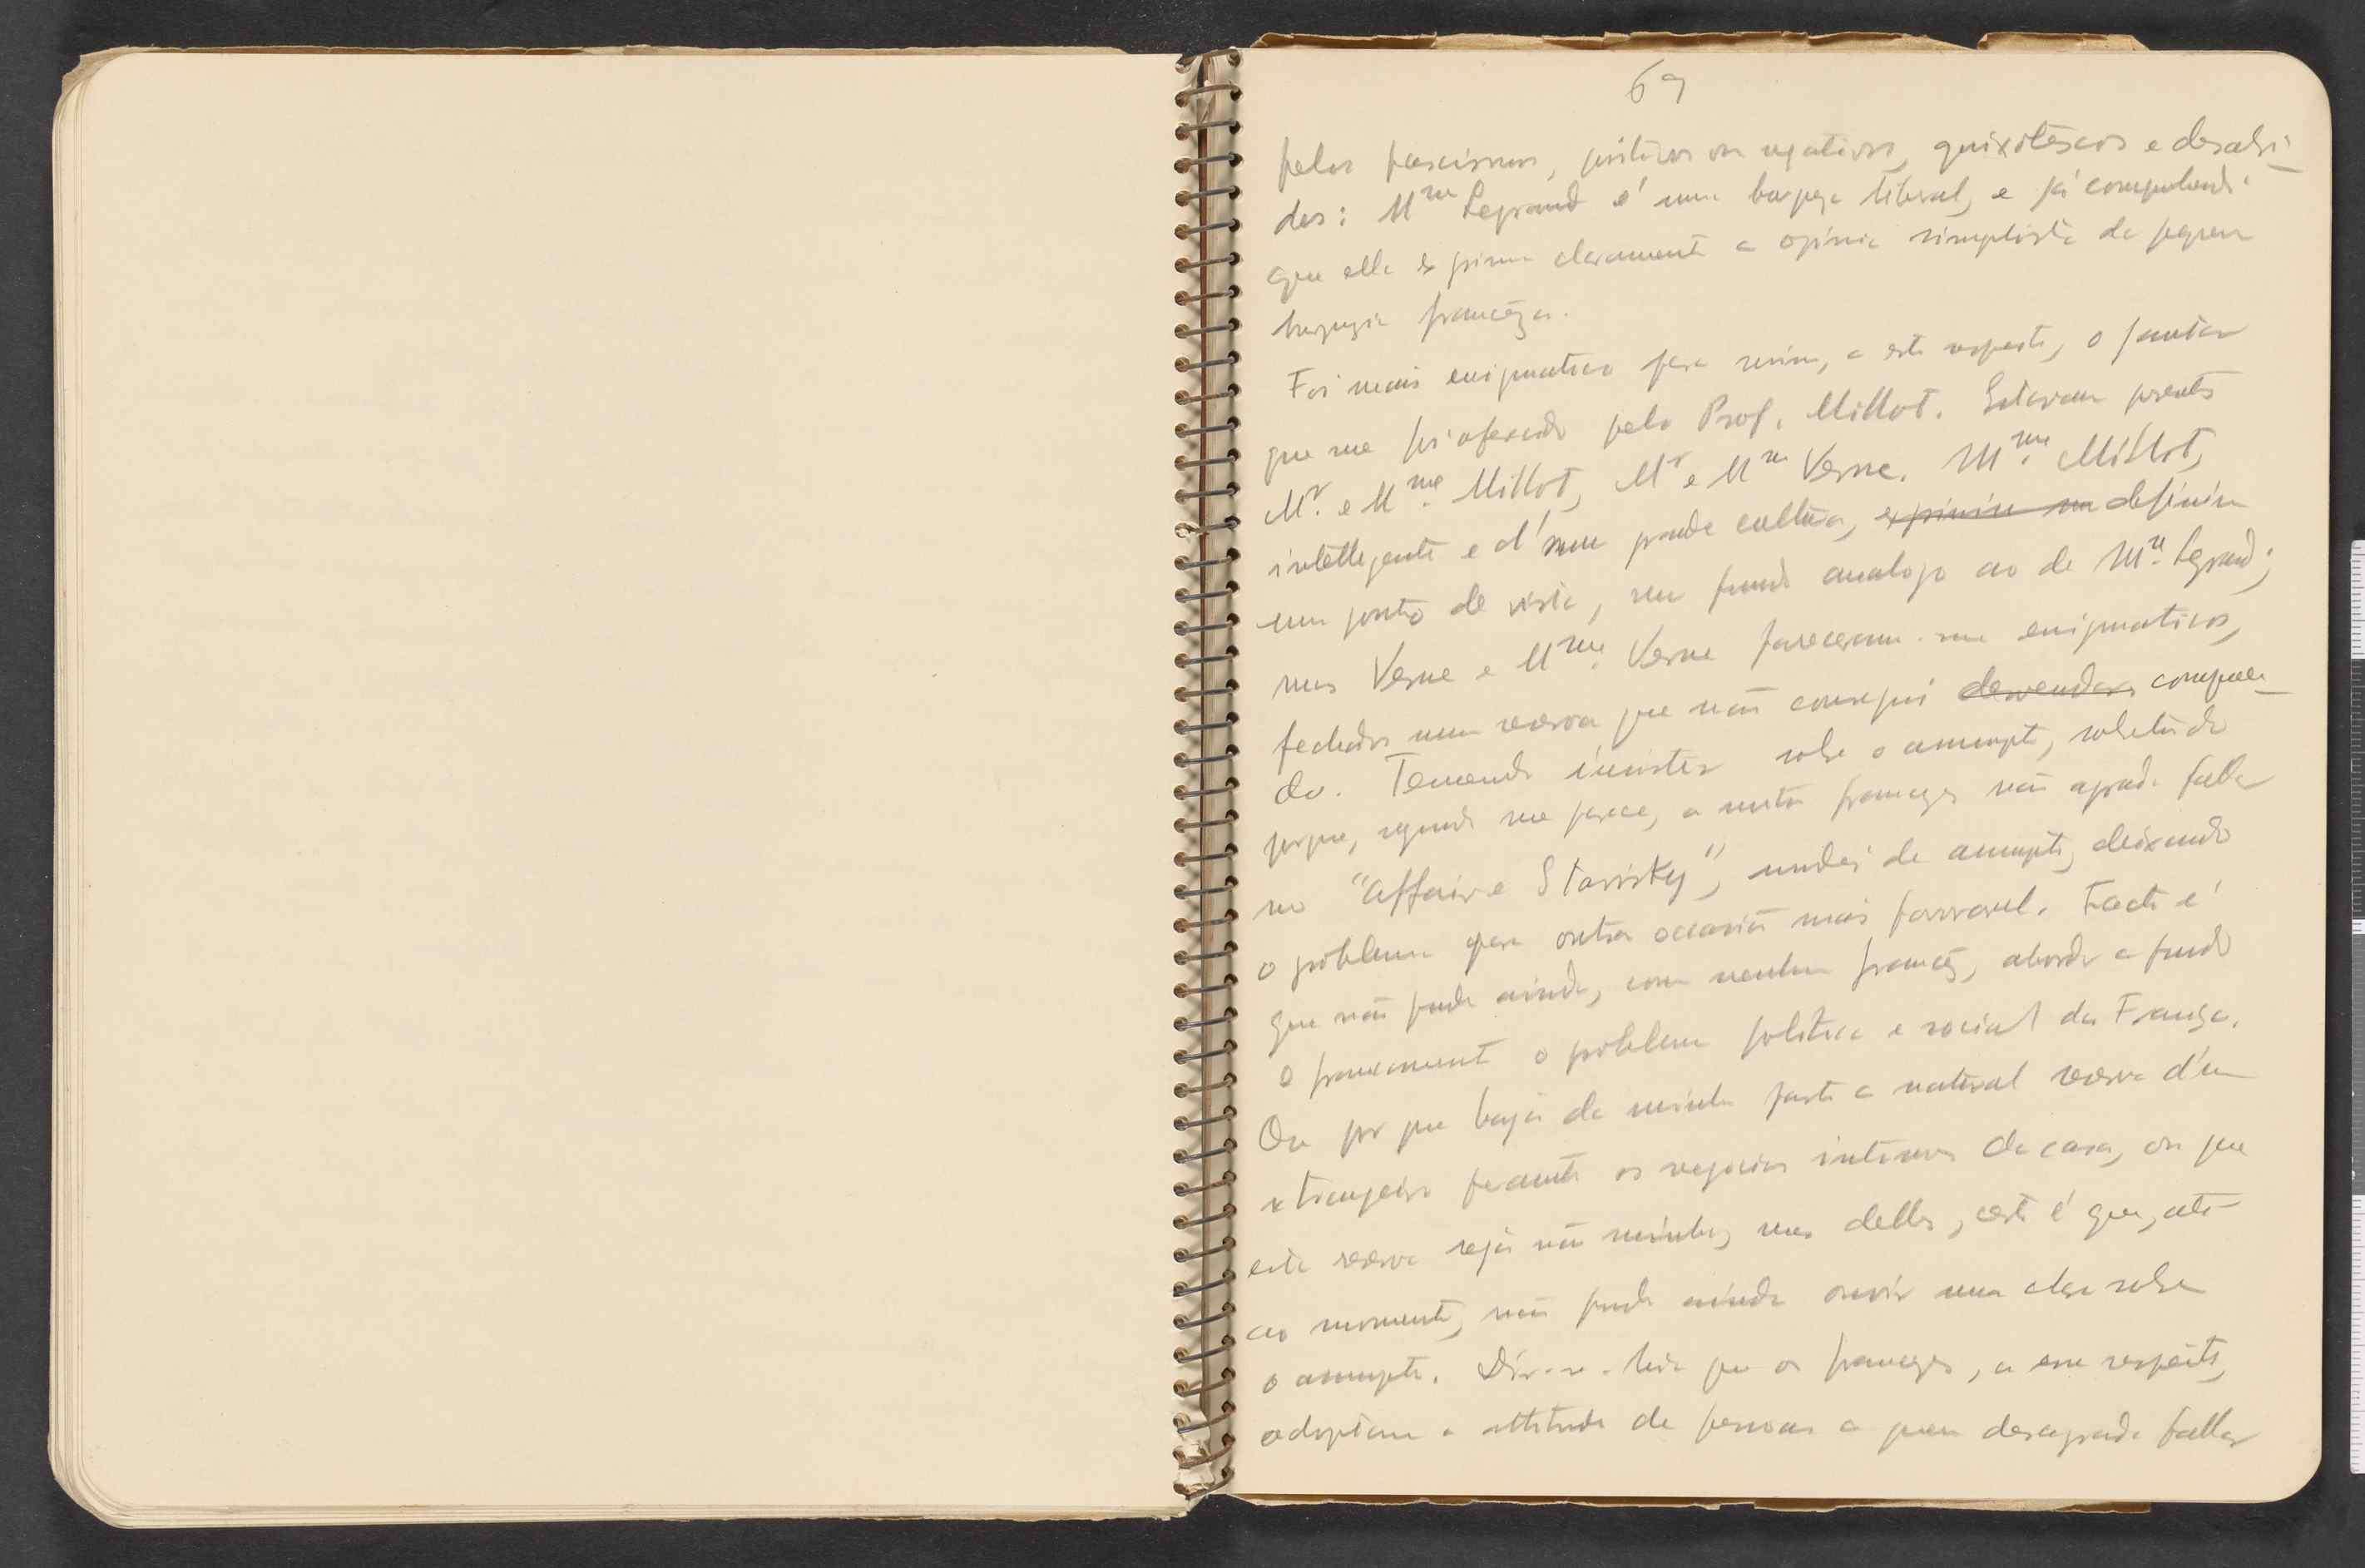 69
pelos fascismos, positivos ou negativos, quixotescos e desabri-
dos: Mme Legrand é uma burgeza liberal, e já comprehendi
que ella exprime claramente a opinia simplista da pequena
burguzia franceza.
Foi mais enigmatico para mim, a este respeito, o jantar
que me foi oferecido pelo Prof. Millot. Estavam presentes
Mr. e Mme. Millot, Mr e Mme Verne. Mme. Millot,
intelligente e d'uma grande cultura, exprimiu um definiu
um ponto de vista, no fundo analogo ao de Mme. Legrand;
mas Verne e Mme. Verne pareceram-me enigmaticos,
fechados numa reserva que não consegui desvendar compreen-
do. Temendo insistir sobre o assumpto, sobretudo
porque, segundo me parece, a muitos francezes não agrada fallar
no "Affaire Stavisky", mudei de assumpto, deixando
o problema para outra occasião mais favoravel. Facto é
que não pude ainda, com nenhum francêz, abordar a fundo
o francamente o problema politico e social da França.
Ou por que haja da minha parte a natural reserva d'um
extrangeiro perante os negocios internos da casa, ou que
esta reserva seja não minha, mas delles, certo é que, até
ao momento, não pude ainda ouvir uma clara sobre
o assumpto. Dir-se-hia que os francezes, a esse respeito,
adoptam a attitude de pessoas a quem desagrada fallar